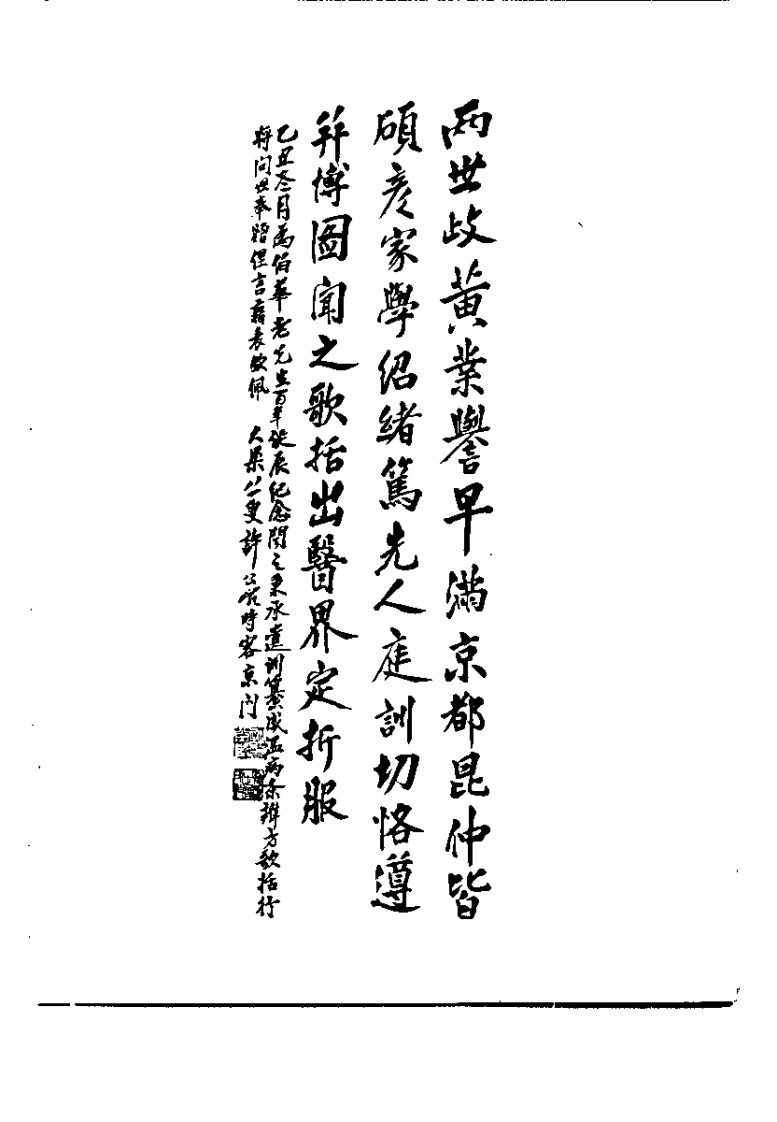 两世歧黄業譽早滿京都昆仲皆
碩彦家學紹緒篤先人庭訓切恪遵
并博圖聞之歌括出醫界定折服
乙丑冬月為伯華老先生百年誕辰纪念閏之秉承遺訓纂成温病条辩方歌括行
将问世奉贈俚言藉表欽佩 大梁 叟許公岩時客京门